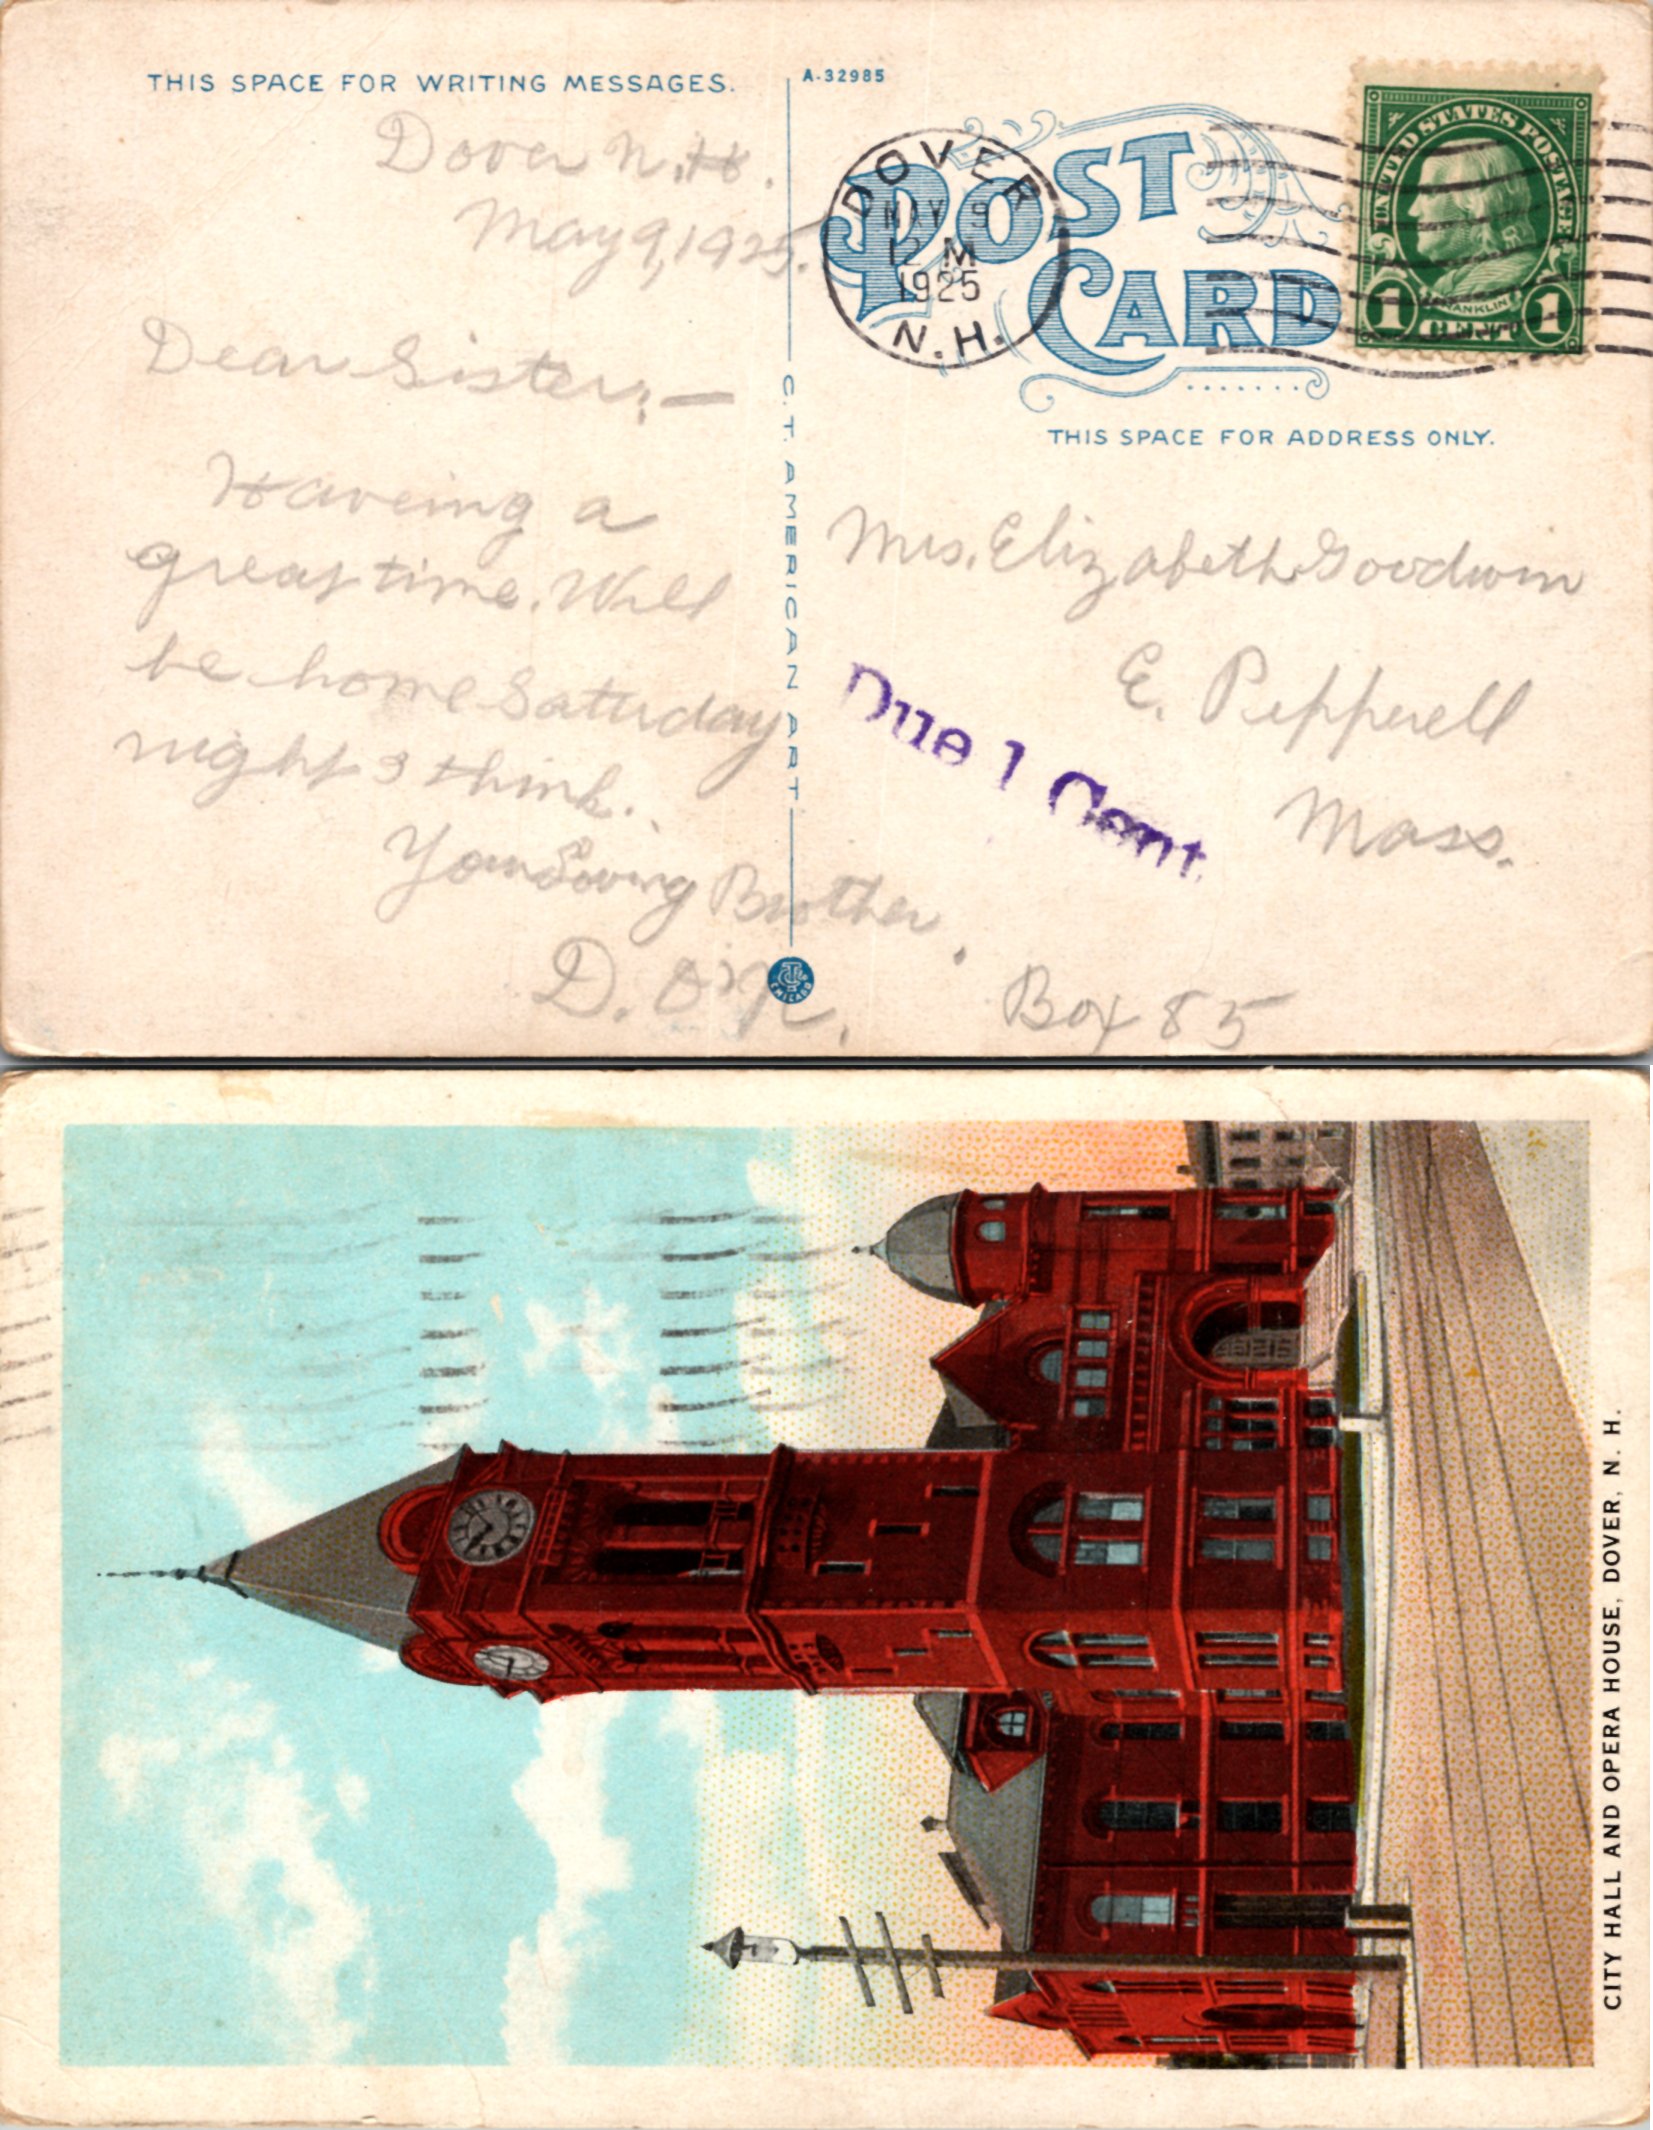 THIS SPACE FOR WRITING MESSAGES.
A-32985
POST CARD
DOVER
MAY 9
12 M
1925
N.H.
UNITED STATES POSTAGE
FRANKLIN
1 CENT 1
THIS SPACE FOR ADDRESS ONLY.
Dover N.H.
May 9, 1925.
Dear Sister:—
Haveing a
great time. Will
be home Saturday
night I think.
Your Loving Brother.
D. O'N.
C. T. AMERICAN ART
CHICAGO
Mrs. Elizabeth Goodwin
E. Pepperell
Mass.
Box 85
Due 1 Cent.
CITY HALL AND OPERA HOUSE, DOVER, N. H.